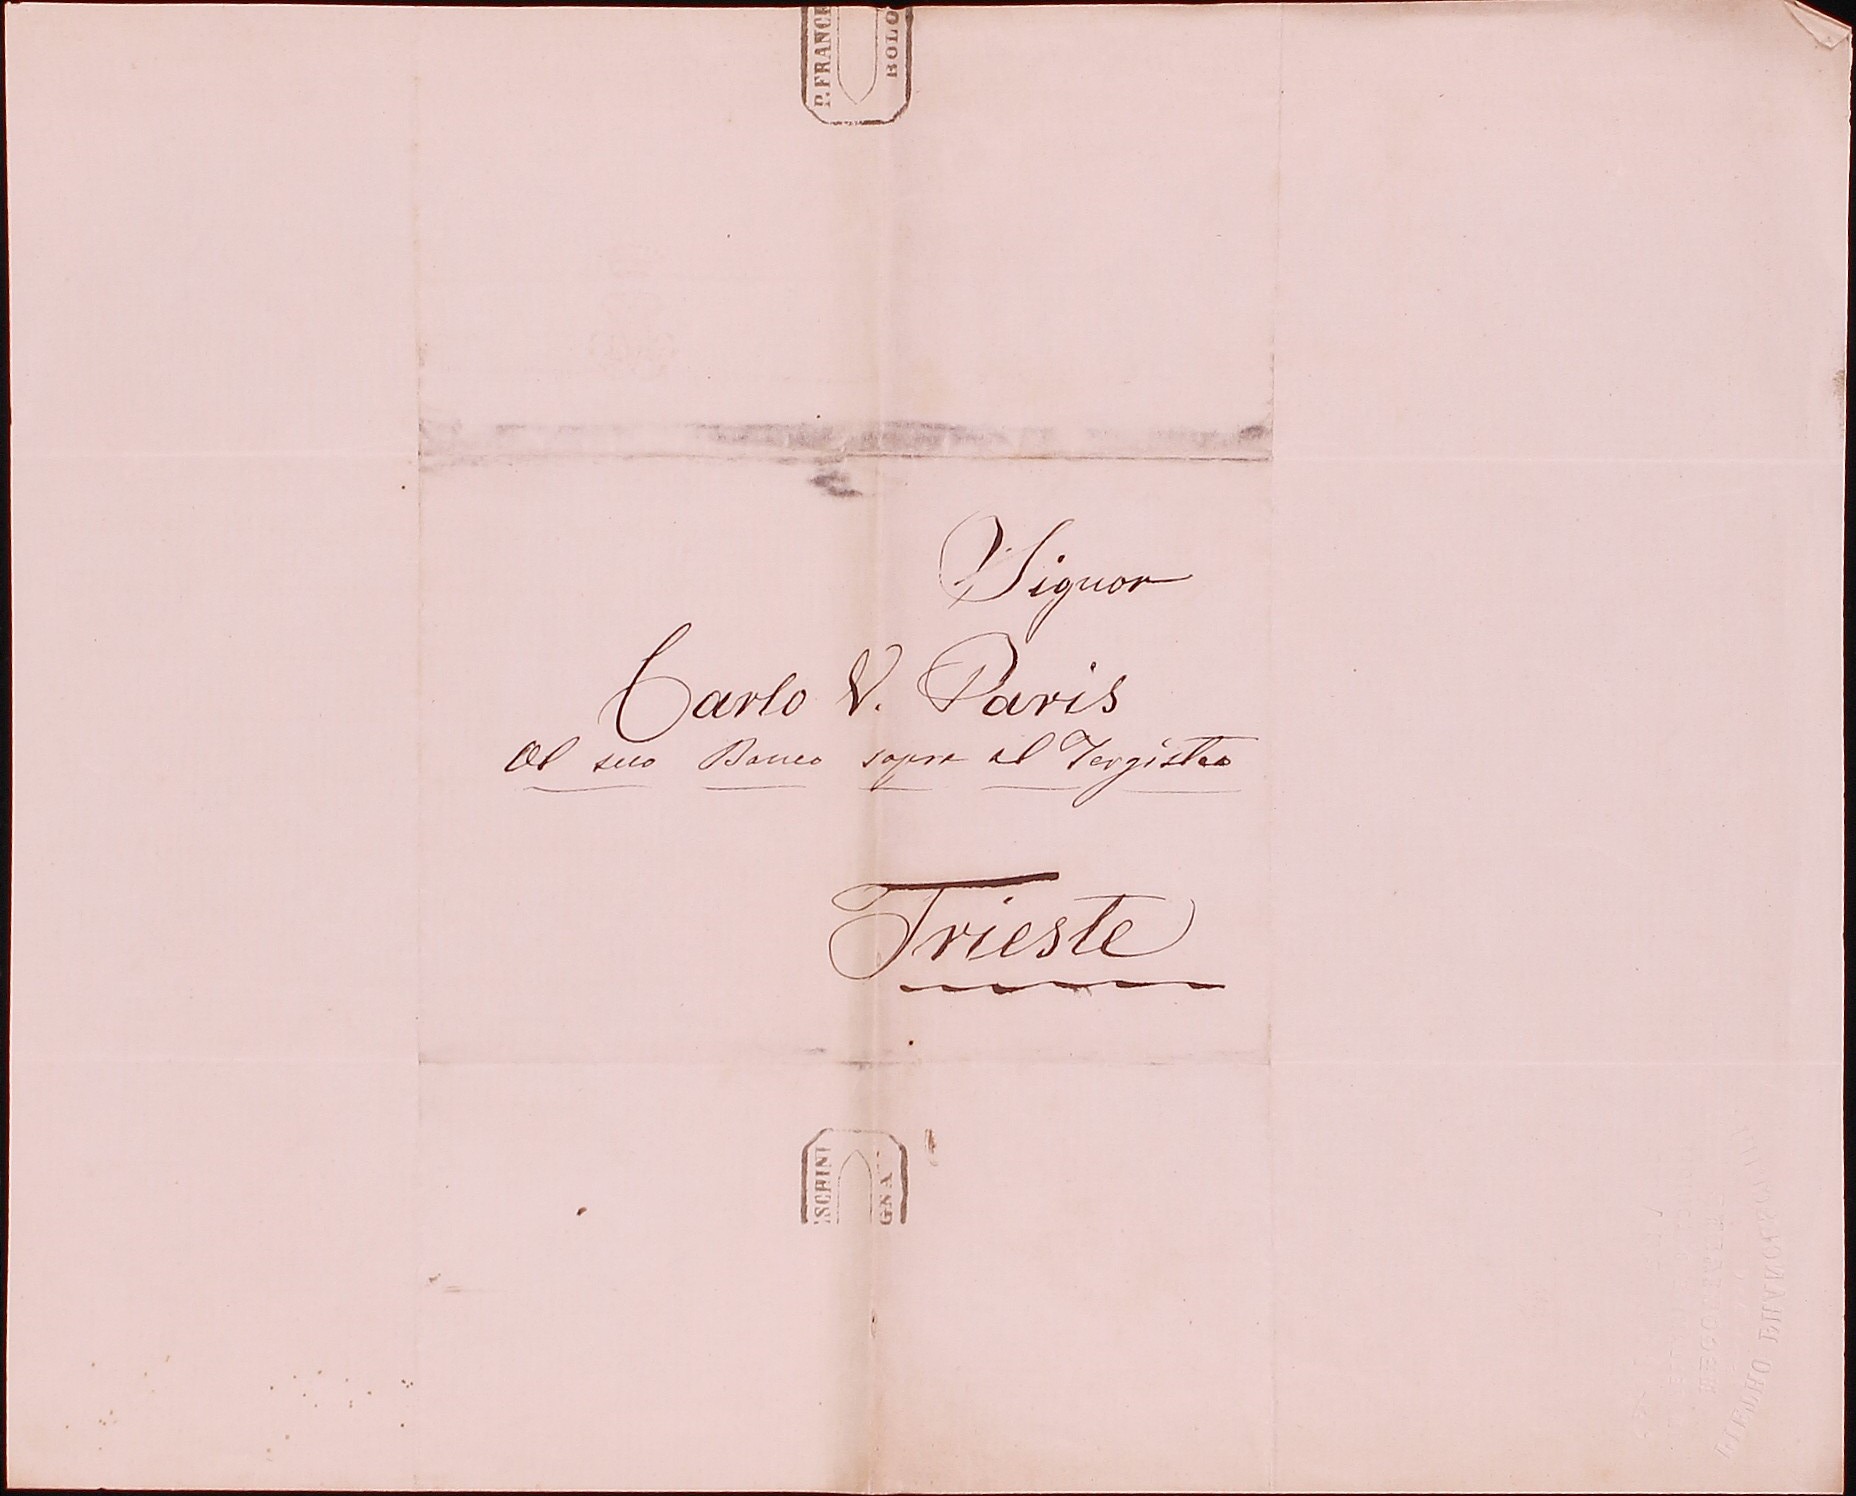 P. FRANCE
BOLO
Signor
Carlo V. Paris
Al suo Banco sopra al Tergisteo
Trieste
SCHINI
GNA